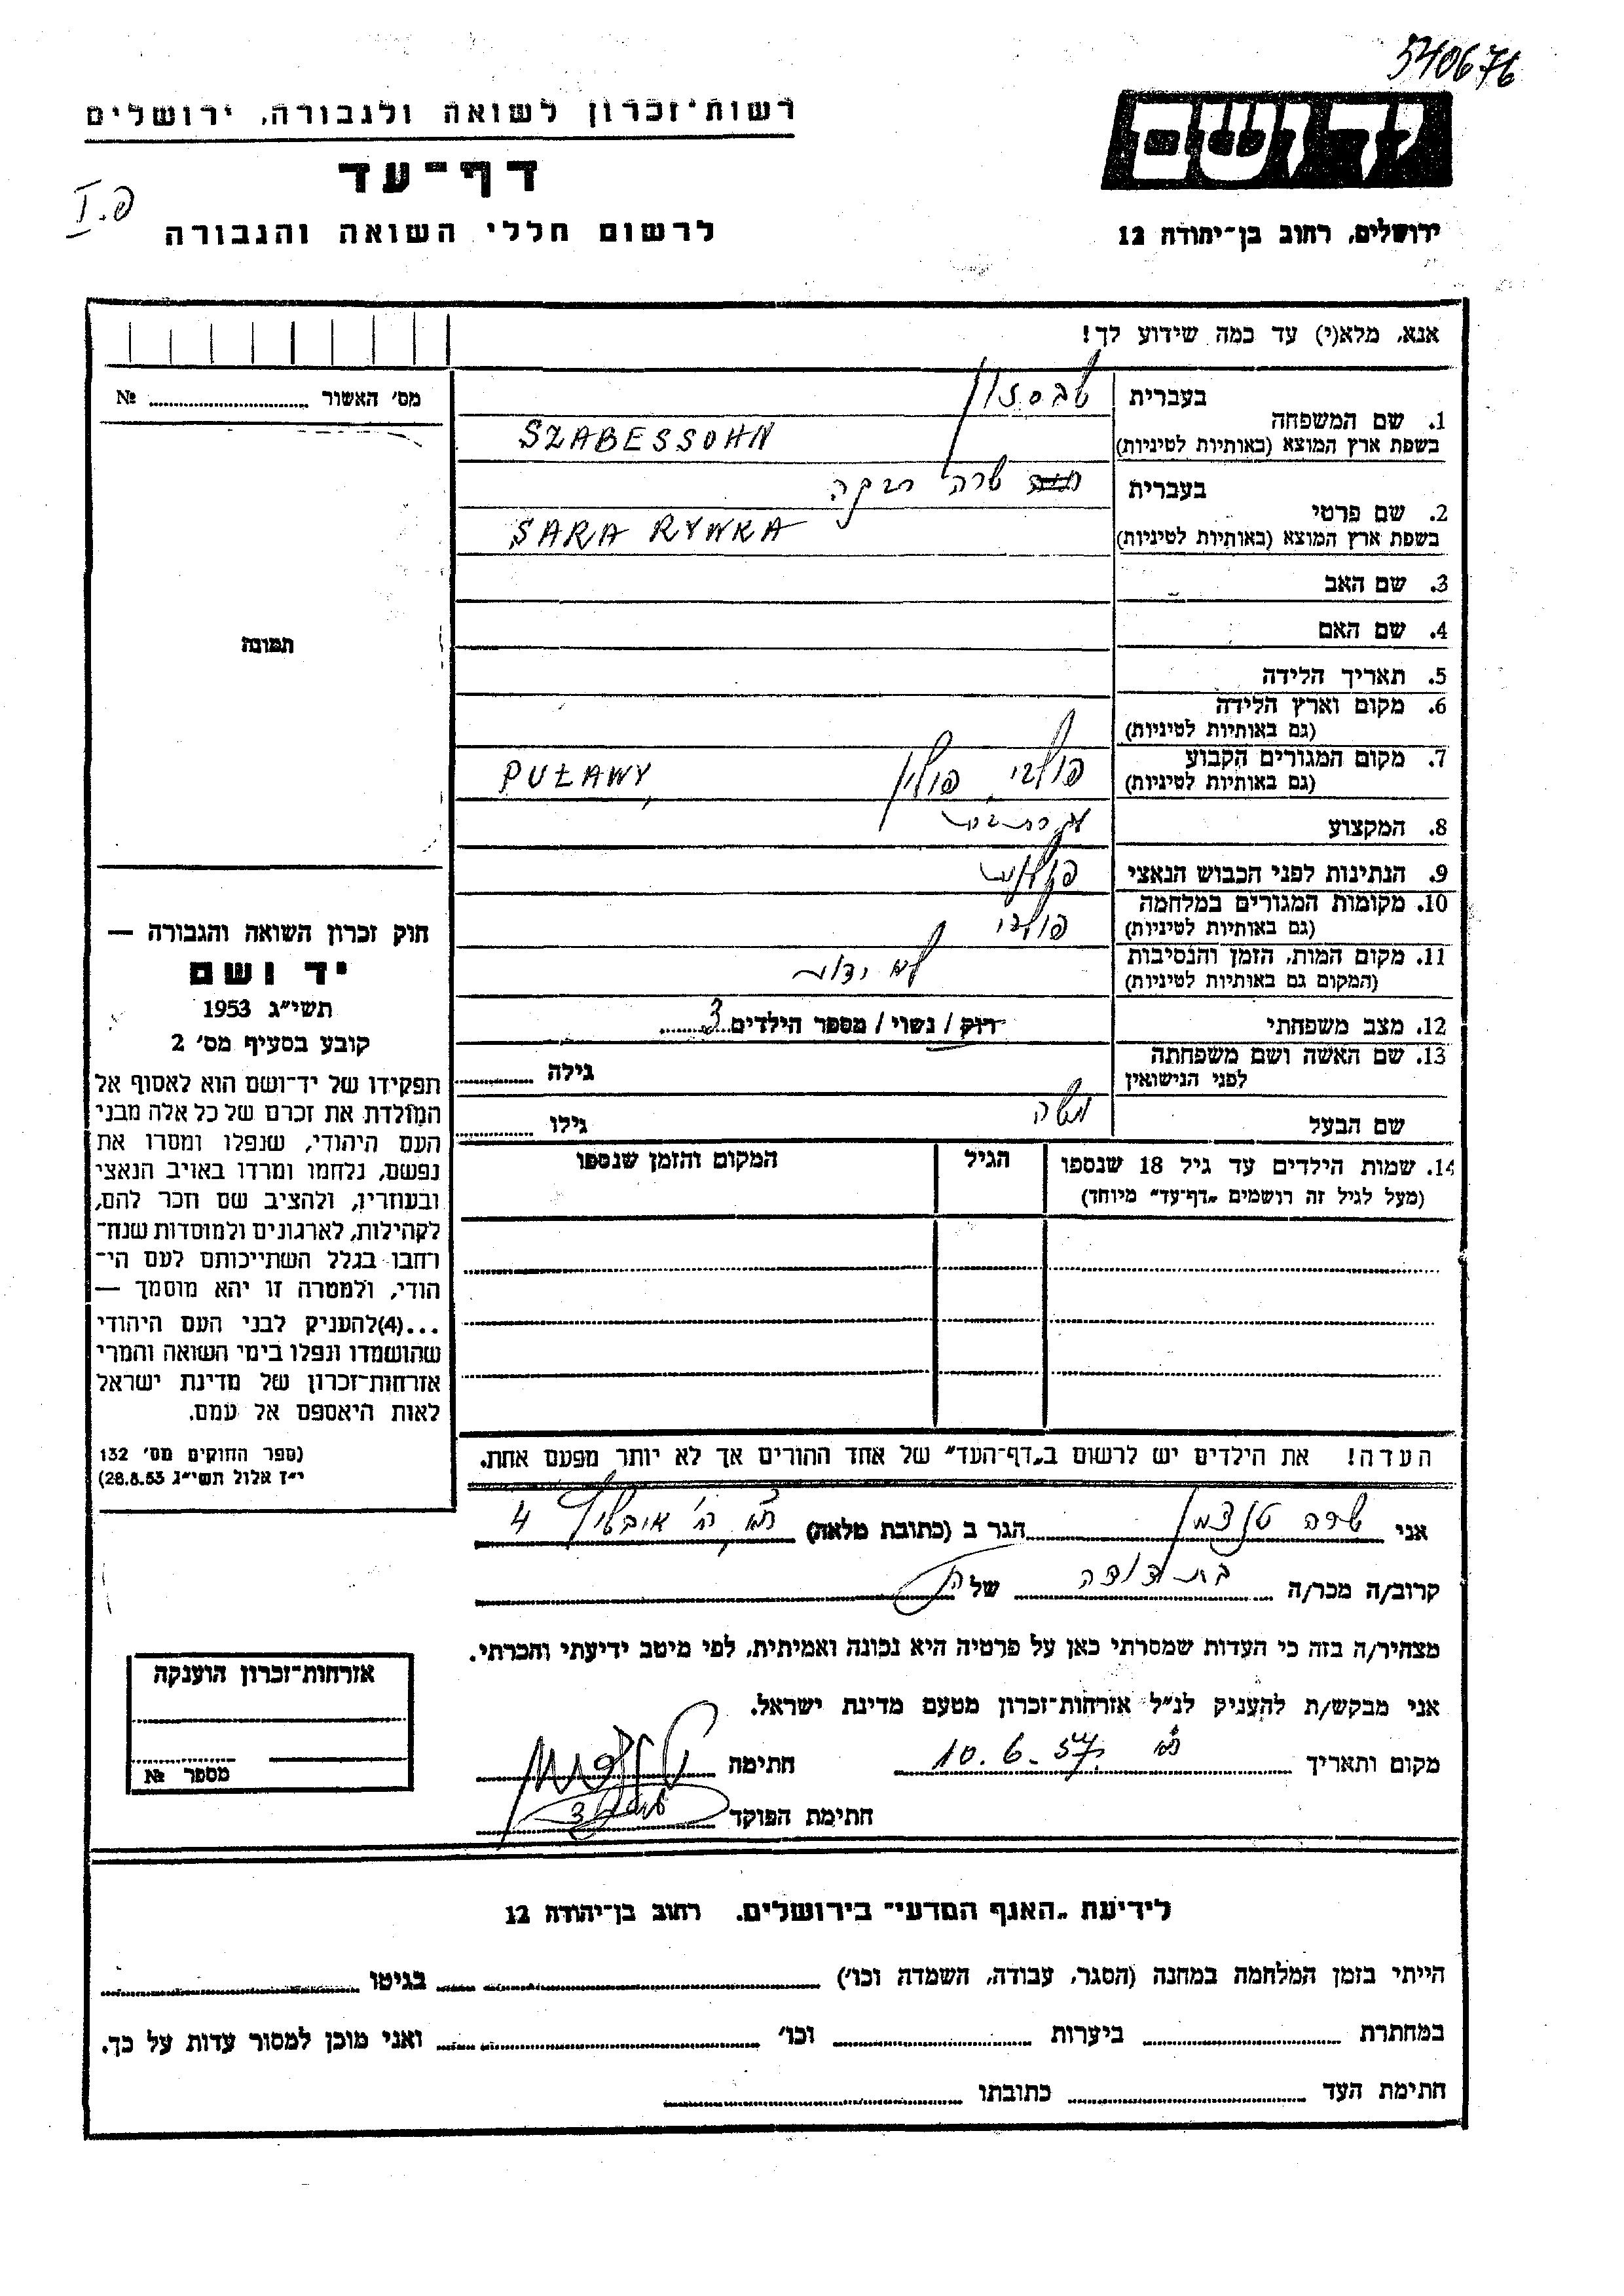 540676
רשות־זכרון לשואה ולגבורה, ירושלים
יד ושם
דף־עד
פ.I
לרשום חללי השואה והגבורה
ירושלים, רחוב בן־יהודה 12
אנא, מלא(י) עד כמה שידוע לך!
מס׳ האשור № 
1. שם המשפחה
בעברית
שבסזון
בשפת ארץ המוצא (באותיות לטיניות)
SZABESSOHN
2. שם פרטי
בעברית
שרה רבקה
בשפת ארץ המוצא (באותיות לטיניות)
SARA RYWKA
3. שם האב
4. שם האם
תמונה
5. תאריך הלידה
6. מקום וארץ הלידה
(גם באותיות לטיניות)
7. מקום המגורים הקבוע
(גם באותיות לטיניות)
פולבי, פולין PUŁAWY,
8. המקצוע
עקרת בית
9. הנתינות לפני הכבוש הנאצי
פולנית
10. מקומות המגורים במלחמה
(גם באותיות לטיניות)
פולבי
11. מקום המות, הזמן והנסיבות
(המקום גם באותיות לטיניות)
לא ידוע
12. מצב משפחתי
רוק / נשוי / מספר הילדים 3
13. שם האשה ושם משפחתה
לפני הנישואין
גילה
שם הבעל
משה
גילו
14. שמות הילדים עד גיל 18 שנספו
(מעל לגיל זה רושמים „דף־עד״ מיוחד)
הגיל
המקום והזמן שנספו
חוק זכרון השואה והגבורה —
יד ושם
תשי״ג 1953
קובע בסעיף מס׳ 2
תפקידו של יד־ושם הוא לאסוף אל
המולדת את זכרם של כל אלה מבני
העם היהודי, שנפלו ומסרו את
נפשם, נלחמו ומרדו באויב הנאצי
ובעוזריו, ולהציב שם וזכר להם,
לקהילות, לארגונים ולמוסדות שנח־
רחבו בגלל השתייכותם לעם הי־
הודי, ולמטרה זו יהא מוסמך —
...(4)להעניק לבני העם היהודי
שהושמדו ונפלו בימי השואה והמרי
אזרחות־זכרון של מדינת ישראל
לאות היאספם אל עמם.
(ספר החוקים מס׳ 132
י״ז אלול תשי״ג 28.8.53)
העדה! את הילדים יש לרשום ב„דף־העד״ של אחד ההורים אך לא יותר מפעם אחת.
אני שרה הגר ב (כתובת מלאה) 4
קרוב/ה מכר/ה בת דודה של
מצהיר/ה בזה כי העדות שמסרתי כאן על פרטיה היא נכונה ואמיתית, לפי מיטב ידיעתי והכרתי.
אני מבקש/ת להעניק לנ״ל אזרחות־זכרון מטעם מדינת ישראל.
מקום ותאריך 10.6.57 חתימה
חתימת הפוקד
אזרחות־זכרון הוענקה
מספר №
לידיעת „האגף המדעי״ בירושלים. רחוב בן־יהודה 12
הייתי בזמן המלחמה במחנה (הסגר, עבודה, השמדה וכו׳) בגיטו
במחתרת ביערות וכו׳ ואני מוכן למסור עדות על כך.
חתימת העד כתובתו